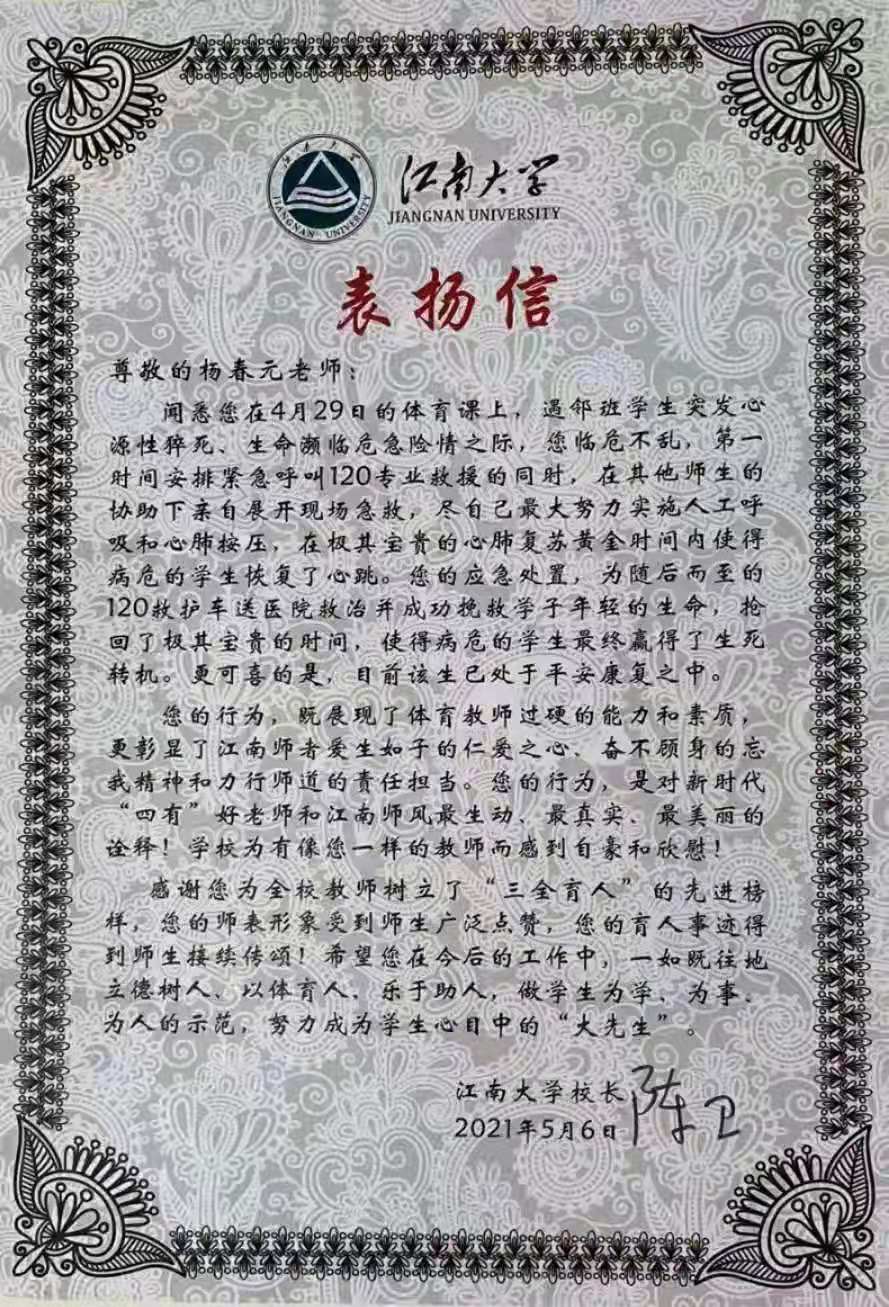 江南大学
JIANGNAN UNIVERSITY
江南大学
JIANGNAN UNIVERSITY
表扬信
尊敬的杨春元老师：
闻悉您在4月29日的体育课上，遇邻班学生突发心
源性猝死、生命濒临危急险情之际，您临危不乱，第一
时间安排紧急呼叫120专业救援的同时，在其他师生的
协助下亲自展开现场急救，尽自己最大努力实施人工呼
吸和心肺按压，在极其宝贵的心肺复苏黄金时间内使得
病危的学生恢复了心跳。您的应急处置，为随后而至的
120救护车送医院救治并成功挽救学子年轻的生命，抢
回了极其宝贵的时间，使得病危的学生最终赢得了生死
转机。更可喜的是，目前该生已处于平安康复之中。
您的行为，既展现了体育教师过硬的能力和素质，
更彰显了江南师者爱生如子的仁爱之心、奋不顾身的忘
我精神和力行师道的责任担当。您的行为，是对新时代
“四有”好老师和江南师风最生动、最真实、最美丽的
诠释！学校为有像您一样的教师而感到自豪和欣慰！
感谢您为全校教师树立了“三全育人”的先进榜
样，您的师表形象受到师生广泛点赞，您的育人事迹得
到师生接续传颂！希望您在今后的工作中，一如既往地
立德树人、以体育人、乐于助人，做学生为学、为事、
为人的示范，努力成为学生心目中的“大先生”。
江南大学校长 陈卫
2021年5月6日